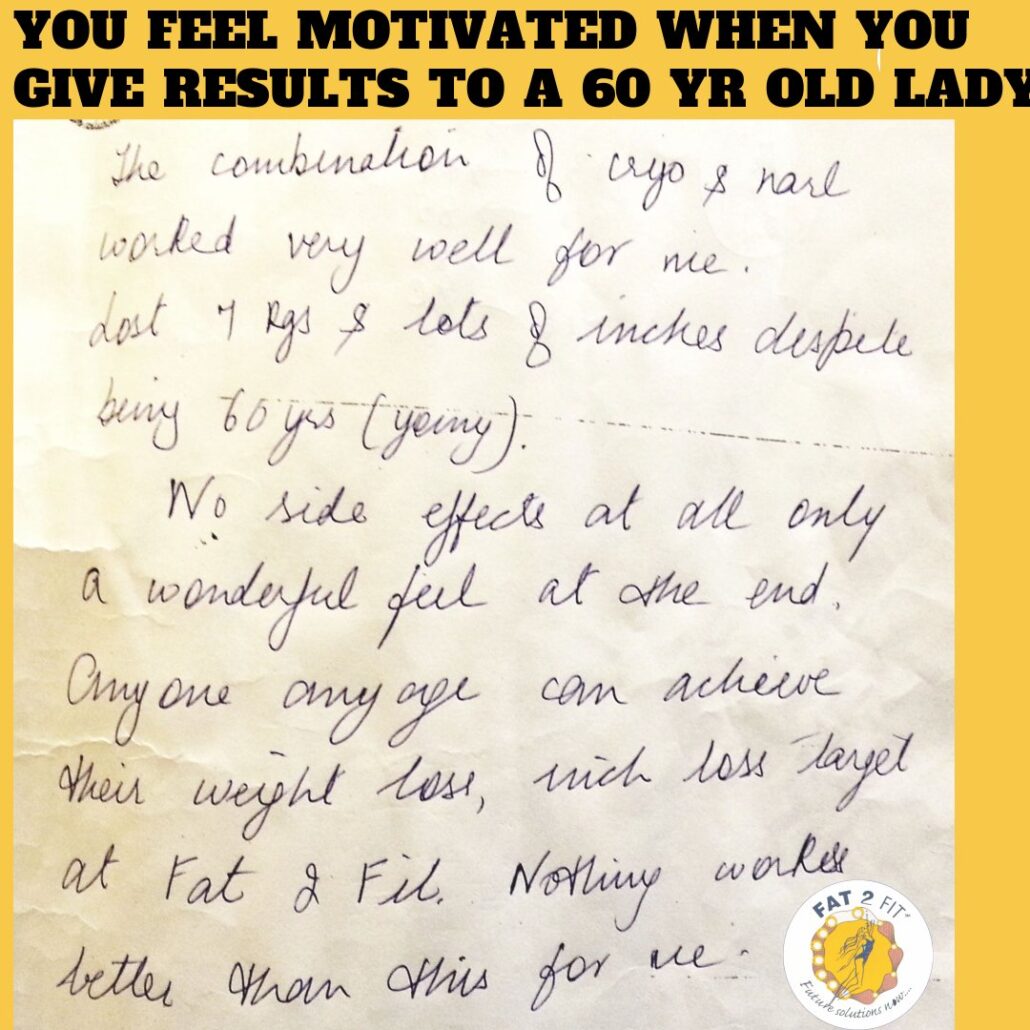 YOU FEEL MOTIVATED WHEN YOU
GIVE RESULTS TO A 60 YR OLD LADY
The combination of cryo &
worked very well for me.
Lost 7 kgs & lots of inches despite
being 60 yrs (young).
No side effects at all only
a wonderful feel at the end.
Anyone any age can achieve
their weight loss, inch loss target
at Fat 2 Fit. Nothing
better than this for me.
FAT 2 FIT
Future solutions now....